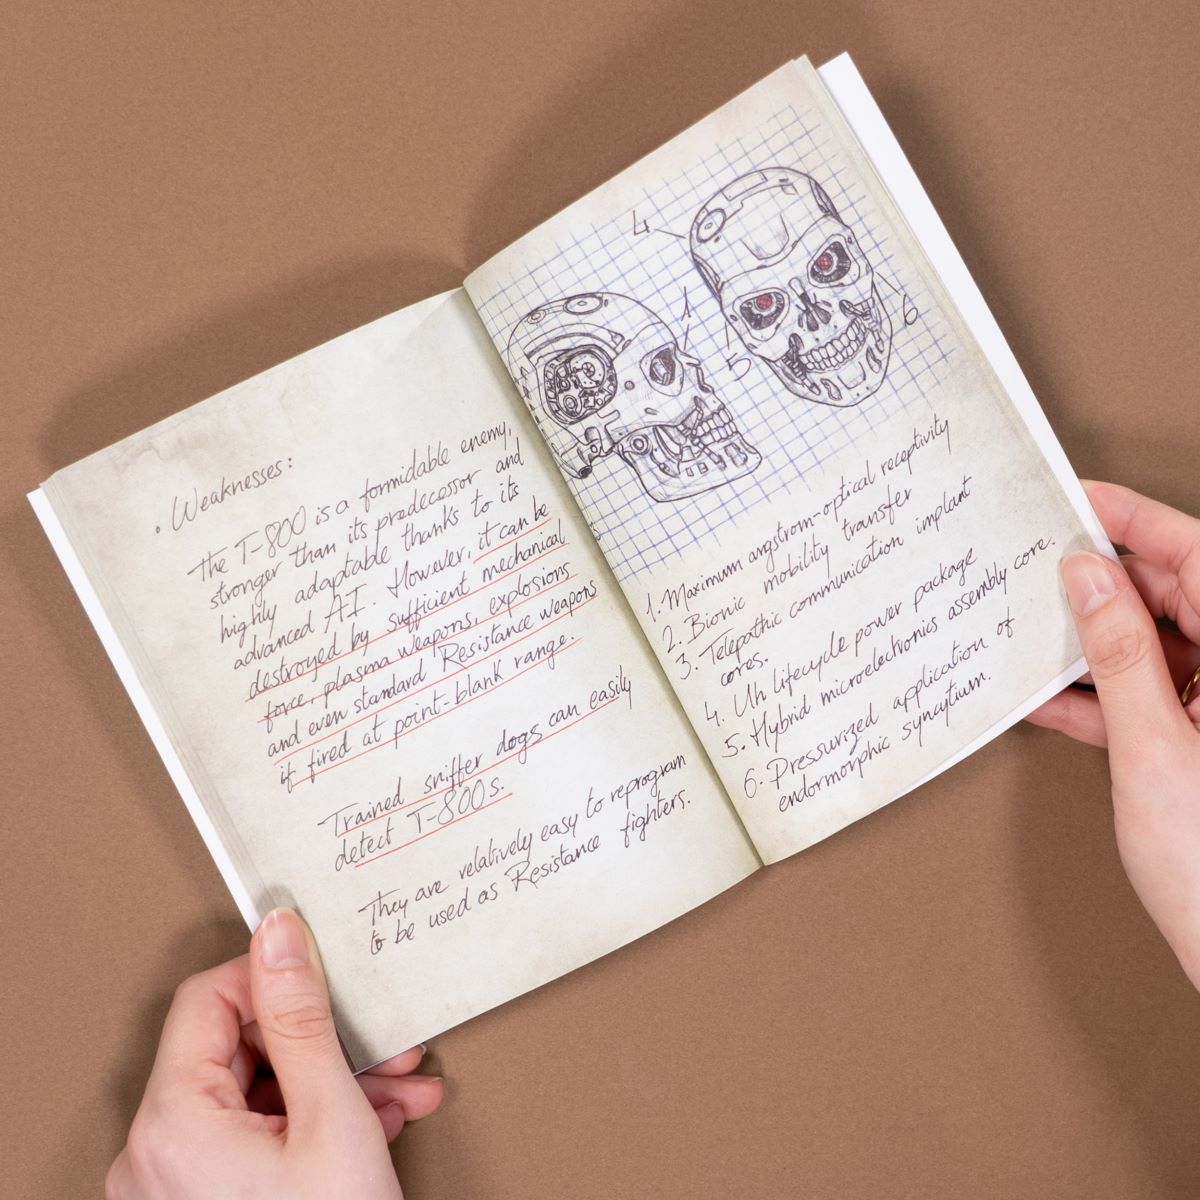 • Weaknesses:
The T-800 is a formidable enemy,
stronger than its predecessor and
highly adaptable thanks to its
advanced AI. However, it can be
destroyed by sufficient mechanical
force, plasma weapons, explosions
and even standard Resistance weapons
if fired at point-blank range.
Trained sniffer dogs can easily
detect T-800s.
They are relatively easy to reprogram
to be used as Resistance fighters.
4
1
5
6
1. Maximum angstrom-optical receptivity
2. Bionic mobility transfer
3. Telepathic communication implant
cores.
4. Uh lifecycle power package
5. Hybrid microelectronics assembly core.
6. Pressurized application of
endormorphic syncytium.